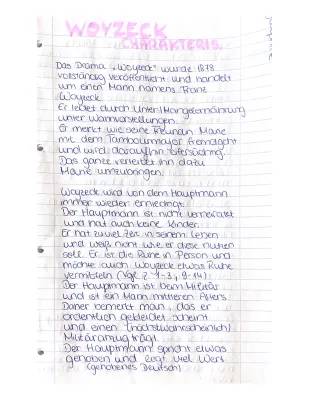 WOYZECK
CHARAKTERIS.
Das Drama "Woyzeck" wurde 1878
vollständig veröffentlicht und handelt
um einen Mann namens Franz
Woyzeck.
Er leidet durch Unter/Mangelernährung
unter Wahnvorstellungen.
Er merkt wie seine Freundin Marie
mit dem Tambourmajor fremdgeht
und wird daraufhin eifersüchtig.
Das ganze verleitet ihn dazu
Marie umzubringen.
Woyzeck wird von dem Hauptmann
immer wieder erniedrigt.
Der Hauptmann ist nicht verheiratet
und hat auch keine Kinder.
Er hat zu viel Zeit in seinem Leben
und weiß nicht wie er diese nutzen
soll. Er ist die Ruhe in Person und
möchte auch Woyzeck etwas Ruhe
vermitteln (Vgl. Z. 1-3, 9-14)
Der Hauptmann ist beim Militär
und ist ein Mann mittleren Alters.
Daher bemerkt man, das er
ordentlich gekleidet scheint
und einen (höchstwahrscheinlich)
Militäranzug trägt.
Der Hauptmann spricht etwas
gehoben und legt viel Wert
(gehobenes Deutsch)